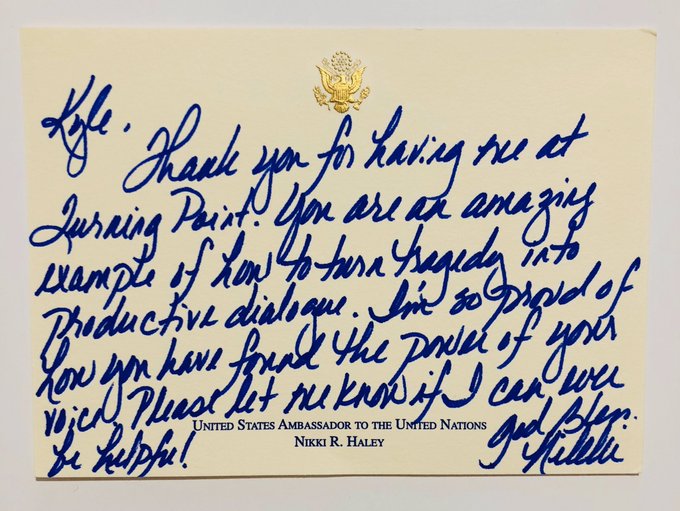 Kyle,
Thank you for having me at
Turning Point. You are an amazing
example of how to turn tragedy into
productive dialogue. I'm so proud of
how you have found the power of your
voice. Please let me know if I can ever
be helpful!
God Bless.
Nikki
UNITED STATES AMBASSADOR TO THE UNITED NATIONS
NIKKI R. HALEY